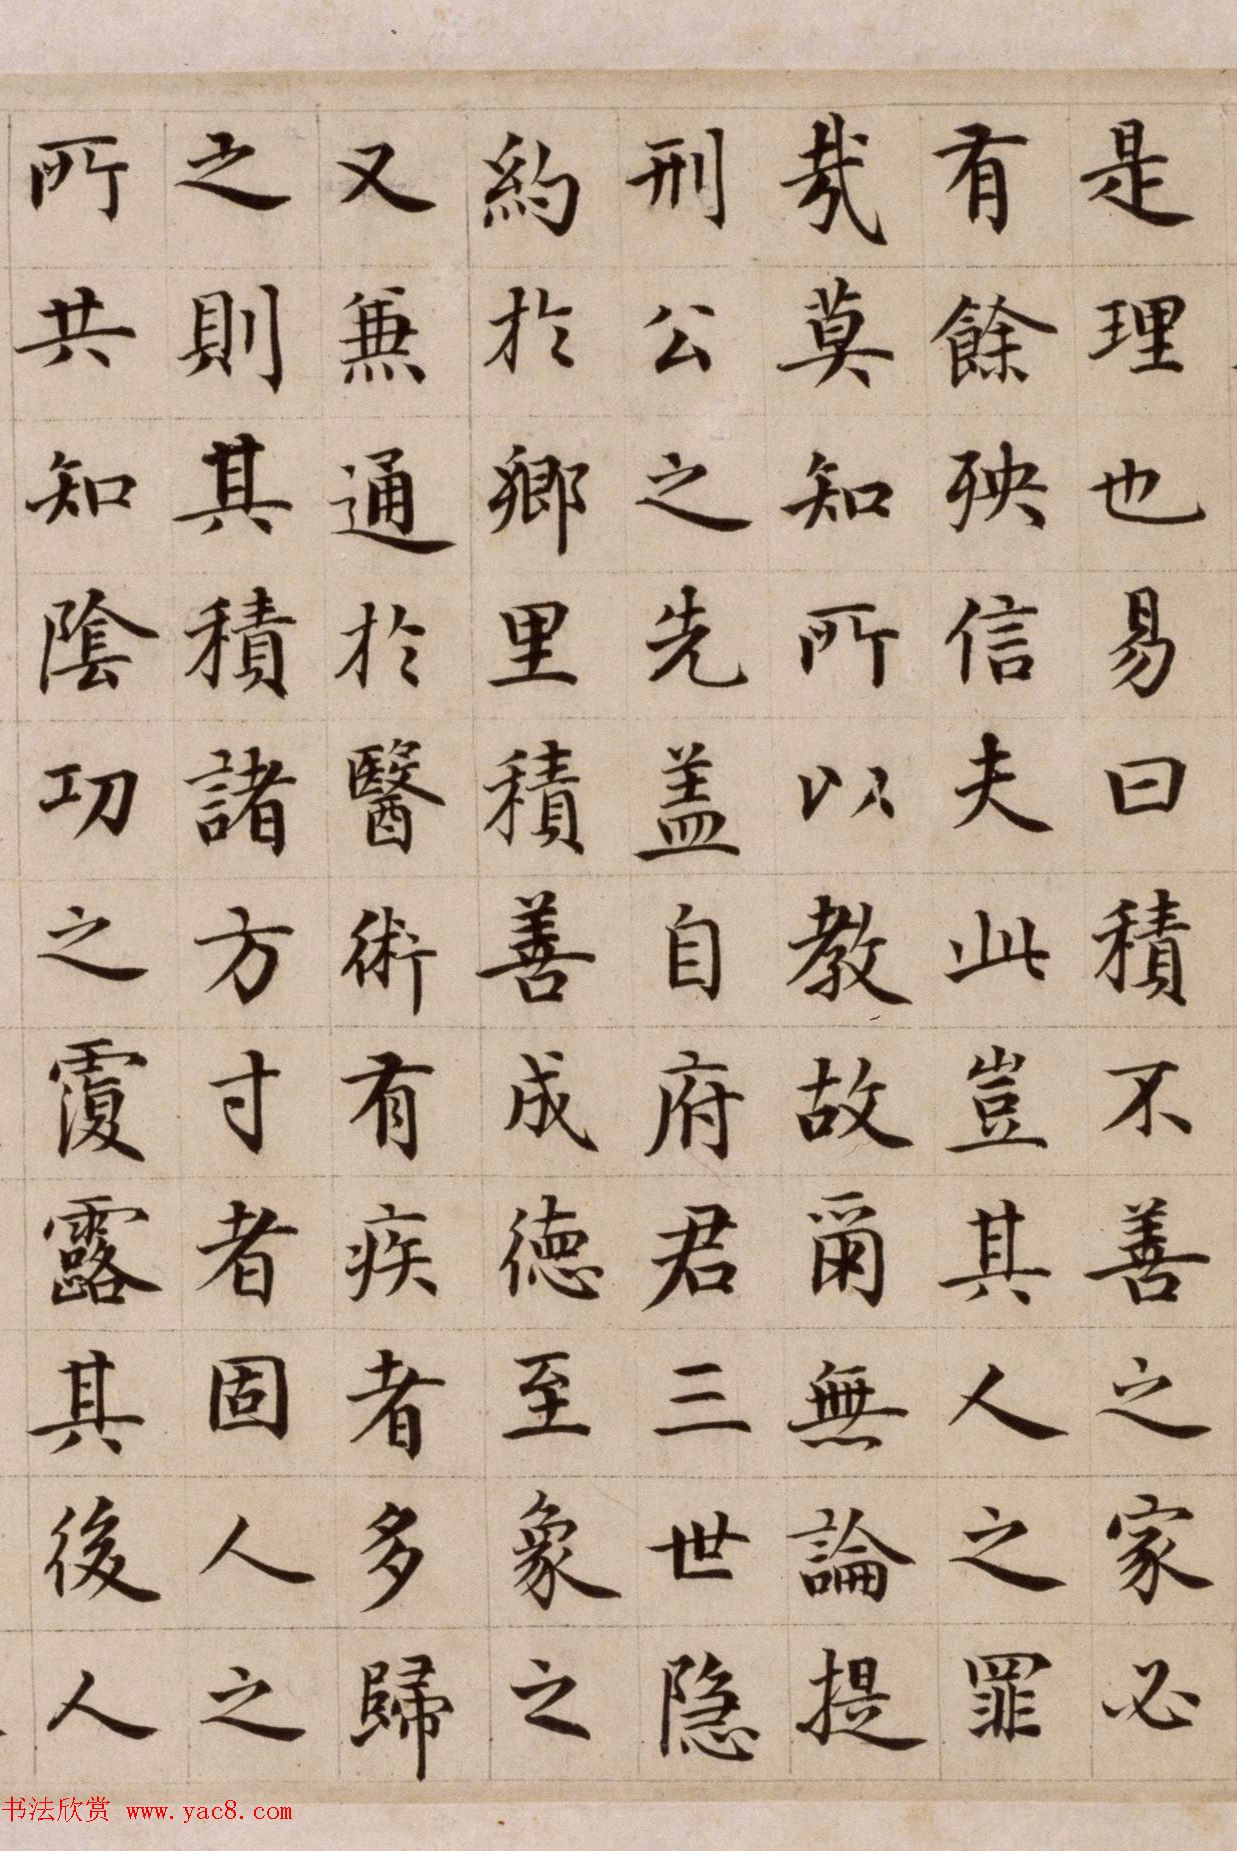 是理也易曰積不善之家必
有餘殃信夫此豈其人之罪
哉莫知所以教故爾無論提
刑公之先盖自府君三世隐
約於鄉里積善成德至象之
又兼通於醫術有疾者多歸
之則其積諸方寸者固人之
所共知陰功之霞露其後人
书法欣赏 www.yac8.com